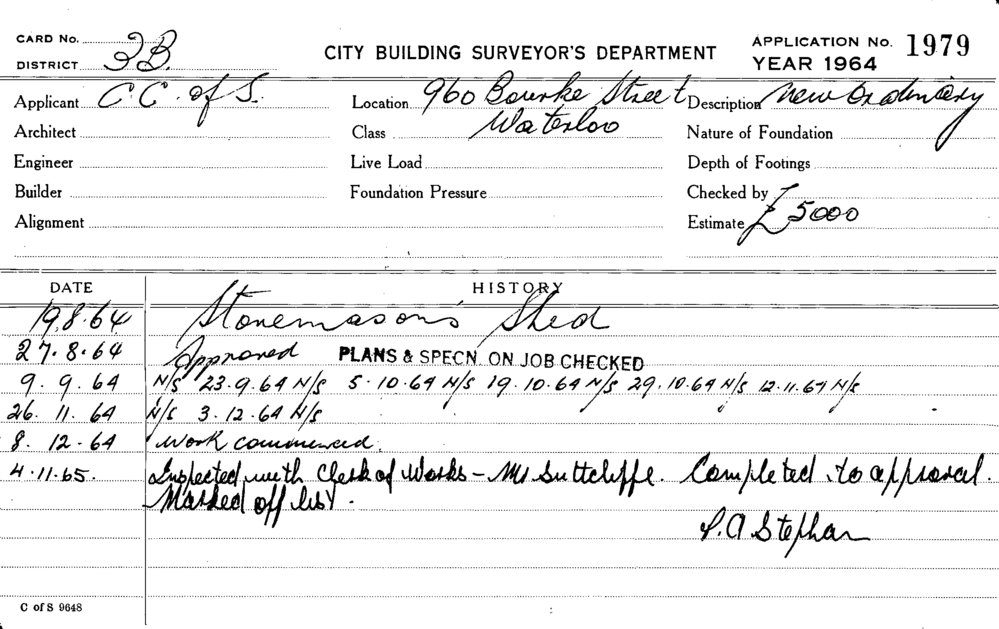 CARD No. CITY BUILDING SURVEYOR'S DEPARTMENT APPLICATION No. 1979
DISTRICT 3B. YEAR 1964
Applicant C.C. of S. Location 960 Bourke Street Description New Ordinary
Architect Class Waterloo Nature of Foundation
Engineer Live Load Depth of Footings
Builder Foundation Pressure Checked by
Alignment Estimate £5000
DATE HISTORY
19.8.64 Stonemason's Shed
27.8.64 Approved PLANS & SPECN. ON JOB CHECKED
9.9.64 N/S 23.9.64 N/S 5.10.64 N/S 19.10.64 N/S 29.10.64 N/S 12.11.64 N/S
26.11.64 N/S 3.12.64 N/S
8.12.64 Work commenced.
4.11.65. Inspected with Clerk of Works - Mr Suttcliffe. Completed to approval.
Marked off list.
P.A Stephan
C of S 9648